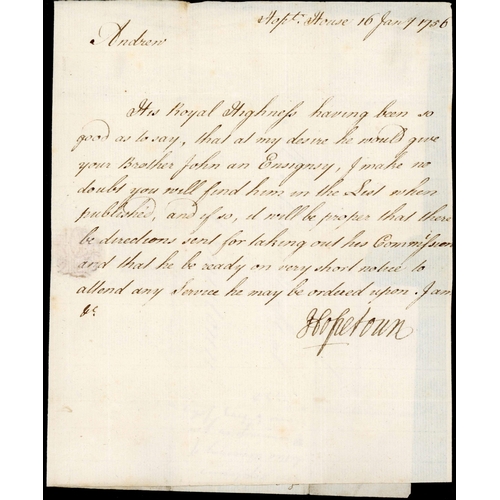 Hopt: House 16 Jany 1756
Andrew
His Royal Highness having been so
good as to say, that at my desire he would give
your Brother John an Ensignsy, I make no
doubt you will find him in the List when
published, and if so, it will be proper that there
be directions sent for taking out his Commission
and that he be ready on very short notice to
attend any Service he may be ordered upon. I am
&c
Hopetoun